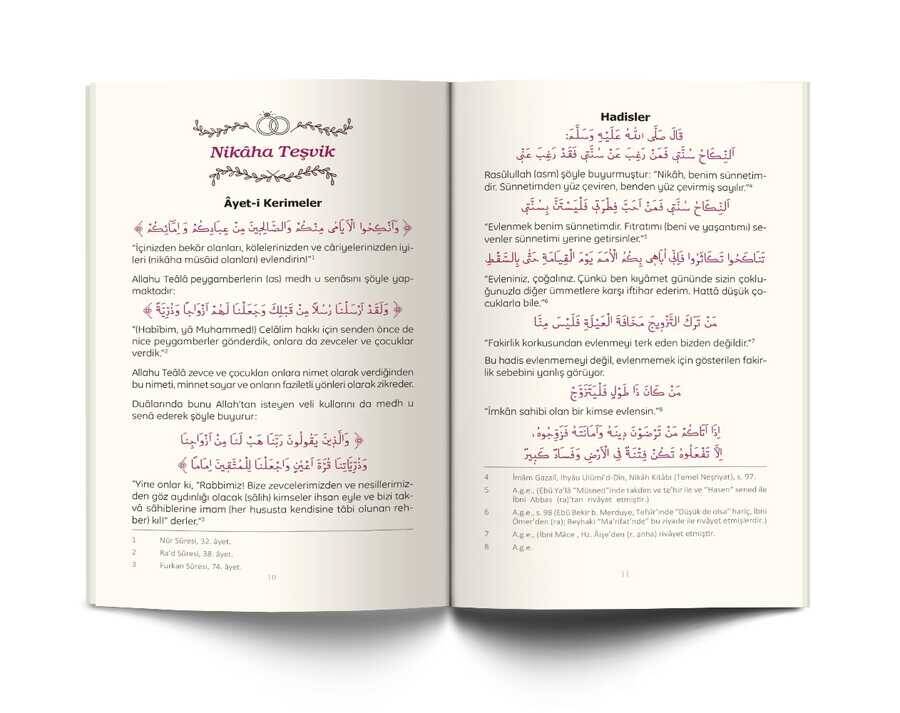 Nikâha Teşvik
Âyet-i Kerimeler
﴿ وَاَنْكِحُوا الْاَيَامٰى مِنْكُمْ وَالصَّالِحِينَ مِنْ عِبَادِكُمْ وَاِمَائِكُمْ ﴾
"İçinizden bekâr olanları, kölelerinizden ve câriyelerinizden iyi-
leri (nikâha müsâid olanları) evlendirin!"1
Allahu Teâlâ peygamberlerin (as) medh u senâsını şöyle yap-
maktadır:
﴿ وَلَقَدْ اَرْسَلْنَا رُسُلًا مِنْ قَبْلِكَ وَجَعَلْنَا لَهُمْ اَزْوَاجًا وَذُرِّيَّةً ﴾
"(Habîbim, yâ Muhammed!) Celâlim hakkı için senden önce de
nice peygamberler gönderdik, onlara da zevceler ve çocuklar
verdik."2
Allahu Teâlâ zevce ve çocukları onlara nimet olarak verdiğinden
bu nimeti, minnet sayar ve onların faziletli yönleri olarak zikreder.
Duâlarında bunu Allah'tan isteyen veli kullarını da medh u
senâ ederek şöyle buyurur:
﴿ وَالَّذِينَ يَقُولُونَ رَبَّنَا هَبْ لَنَا مِنْ اَزْوَاجِنَا
وَذُرِّيَّاتِنَا قُرَّةَ اَعْيُنٍ وَاجْعَلْنَا لِلْمُتَّقِينَ اِمَامًا ﴾
"Yine onlar ki, "Rabbimiz! Bize zevcelerimizden ve nesillerimiz-
den göz aydınlığı olacak (sâlih) kimseler ihsan eyle ve bizi tak-
vâ sâhiblerine imam (her hususta kendisine tâbi olunan reh-
ber) kıl!" derler."3
1 Nûr Sûresi, 32. âyet.
2 Ra'd Sûresi, 38. âyet.
3 Furkan Sûresi, 74. âyet.
10
Hadisler
قَالَ صَلَّى اللّٰهُ عَلَيْهِ وَسَلَّمَ:
اَلنِّكَاحُ سُنَّتِي فَمَنْ رَغِبَ عَنْ سُنَّتِي فَقَدْ رَغِبَ عَنِّي
Rasûlullah (asm) şöyle buyurmuştur: "Nikâh, benim sünnetim-
dir. Sünnetimden yüz çeviren, benden yüz çevirmiş sayılır."4
اَلنِّكَاحُ سُنَّتِي فَمَنْ اَحَبَّ فِطْرَتِي فَلْيَسْتَنَّ بِسُنَّتِي
"Evlenmek benim sünnetimdir. Fıtratımı (beni ve yaşantımı) se-
venler sünnetimi yerine getirsinler."5
تَنَاكَحُوا تَكَاثَرُوا فَاِنِّي اُبَاهِي بِكُمُ الْاُمَمَ يَوْمَ الْقِيَامَةِ حَتّٰى بِالسَّقْطِ
"Evleniniz, çoğalınız. Çünkü ben kıyâmet gününde sizin çoklu-
ğunuzla diğer ümmetlere karşı iftihar ederim. Hattâ düşük ço-
cuklarla bile."6
مَنْ تَرَكَ التَّزْوِيجَ مَخَافَةَ الْعَيْلَةِ فَلَيْسَ مِنَّا
"Fakirlik korkusundan evlenmeyi terk eden bizden değildir."7
Bu hadis evlenmemeyi değil, evlenmemek için gösterilen fakir-
lik sebebini yanlış görüyor.
مَنْ كَانَ ذَا طَوْلٍ فَلْيَتَزَوَّجْ
"İmkân sahibi olan bir kimse evlensin."8
اِذَا اَتَاكُمْ مَنْ تَرْضَوْنَ دِينَهُ وَاَمَانَتَهُ فَزَوِّجُوهُ،
اِلَّا تَفْعَلُوهُ تَكُنْ فِتْنَةٌ فِي الْاَرْضِ وَفَسَادٌ كَبِيرٌ
4 İmâm Gazalî, İhyâu Ulûmi'd-Dîn, Nikâh Kitâbı (Temel Neşriyat), s. 97.
5 A.g.e., (Ebû Ya'lâ "Müsned"inde takdim ve te'hir ile ve "Hasen" sened ile
İbni Abbas (ra)'tan rivâyet etmiştir.)
6 A.g.e., s. 98 (Ebû Bekir b. Merduye, Tefsîr'inde "Düşük de olsa" hariç, İbni
Ömer'den (ra); Beyhakî "Ma'rifat'nde" bu ziyade ile rivâyet etmişlerdir.)
7 A.g.e., (İbni Mâce , Hz. Âişe'den (r. anha) rivâyet etmiştir.
8 A.g.e.
11